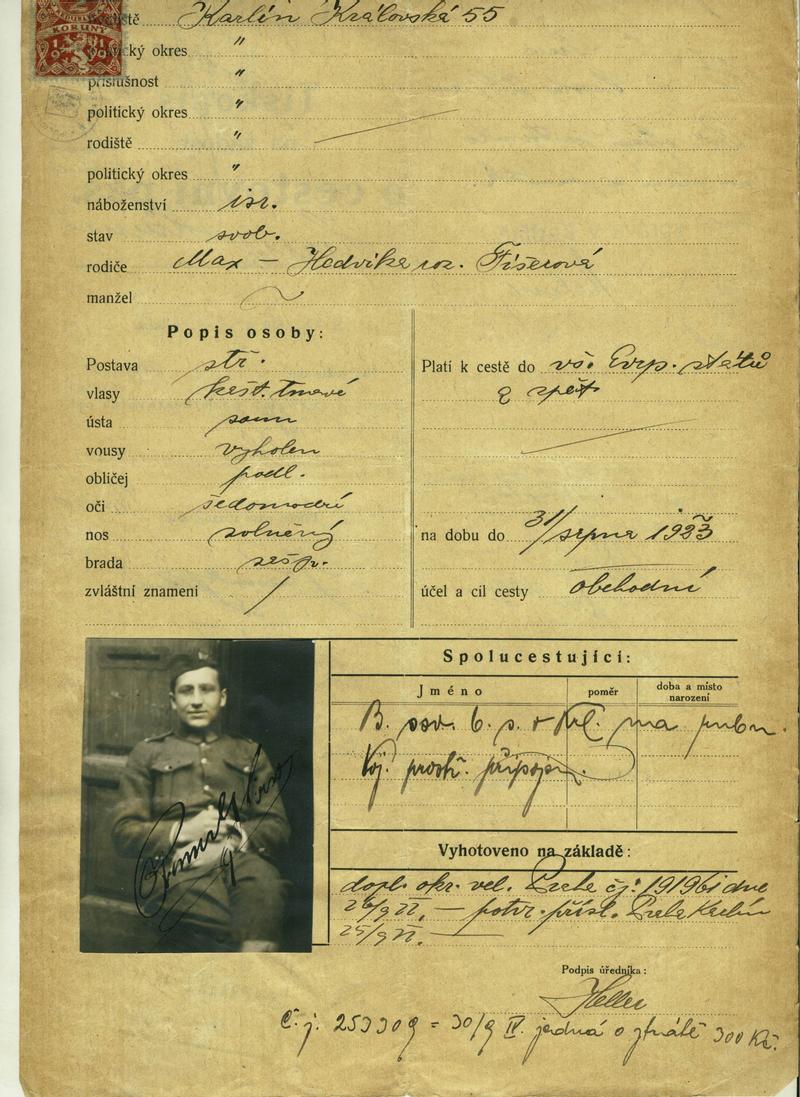 KORUNY
Karlín Královská 55
politický okres "
příslušnost "
politický okres "
rodiště "
politický okres "
náboženství isr.
stav svob.
rodiče Max — Hedvika roz. Fišerová
manžel
Popis osoby:
Postava stř.
vlasy kešt. tmavé
ústa
vousy vyholen
obličej podl.
oči šedomodré
nos
brada
zvláštní znamení /
Platí k cestě do vš. Evp. států
a zpět
na dobu do 31/srpna 1923
účel a cíl cesty obchodní
Spolucestující:
Jméno poměr doba a místo narození
B. 6. s. v na
Voj. připoj.
Vyhotoveno na základě:
dopl. okr. vel. čj: dne
26/9 22. — potv. přísl. Karlín
25/9 22. —
Podpis úředníka:
Heller
Č. j. 253309 = 30/9 jedná o ztrátě 300 Kč.